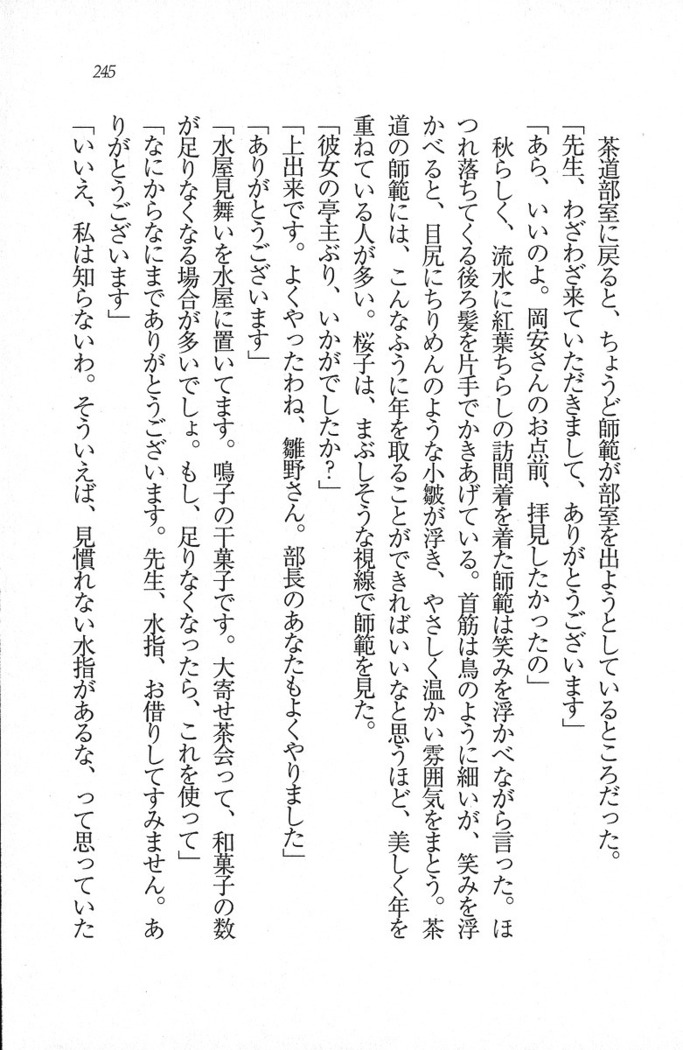 245
茶道部室に戻ると、ちょうど師範が部室を出ようとしているところだった。
「先生、わざわざ来ていただきまして、ありがとうございます」
「あら、いいのよ。岡安さんのお点前、拝見したかったの」
秋らしく、流水に紅葉ちらしの訪問着を着た師範は笑みを浮かべながら言った。ほ
つれ落ちてくる後ろ髪を片手でかきあげている。首筋は鳥のように細いが、笑みを浮
かべると、目尻にちりめんのような小皺が浮き、やさしく温かい雰囲気をまとう。茶
道の師範には、こんなふうに年を取ることができればいいなと思うほど、美しく年を
重ねている人が多い。桜子は、まぶしそうな視線で師範を見た。
「彼女の亭主ぶり、いかがでしたか?」
「上出来です。よくやったわね、雛野さん。部長のあなたもよくやりました」
「ありがとうございます」
「水屋見舞いを水屋に置いてます。鳴子の干菓子です。大寄せ茶会って、和菓子の数
が足りなくなる場合が多いでしょ。もし、足りなくなったら、これを使って」
「なにからなにまでありがとうございます。先生、水指、お借りしてすみません。あ
りがとうございます」
「いいえ、私は知らないわ。そういえば、見慣れない水指があるな、って思っていた